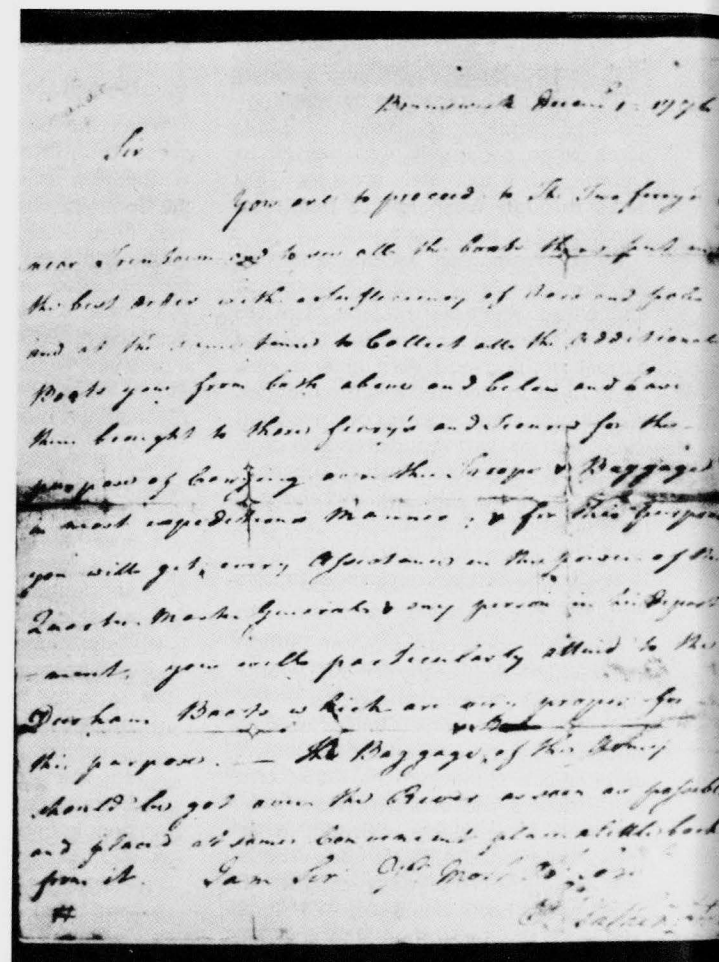 Brunswick Decem 1 1776
Sir
You are to proceed to the Two ferry's
near Trentown and to see all the boats there put in
the best order with a sufficiency of Oars and poles
and at the same time to Collect all the additional
Boats you from both above and below and have
them brought to those ferry's and Secured for the
purpose of Carrying over the Troops & Baggage
in most expeditious Manner, & for this purpose
you will get every Assistance in the power of the
Quarter Master General & any person in his depart
ment. you will particularly attend to the
Durham Boats which are very proper for
this purpose. — The Baggage of the Army
should be got over the River as soon as possible
and placed at some Convenient place a little back
from it. I am Sir Yr Most
#